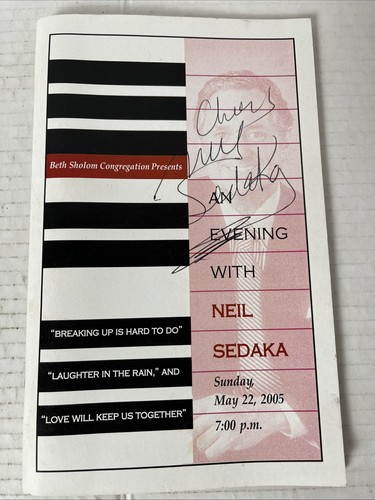 Cheers
Neil
Sedaka
Beth Sholom Congregation Presents
AN
EVENING
WITH
NEIL
SEDAKA
"BREAKING UP IS HARD TO DO"
"LAUGHTER IN THE RAIN," AND
"LOVE WILL KEEP US TOGETHER"
Sunday,
May 22, 2005
7:00 p.m.